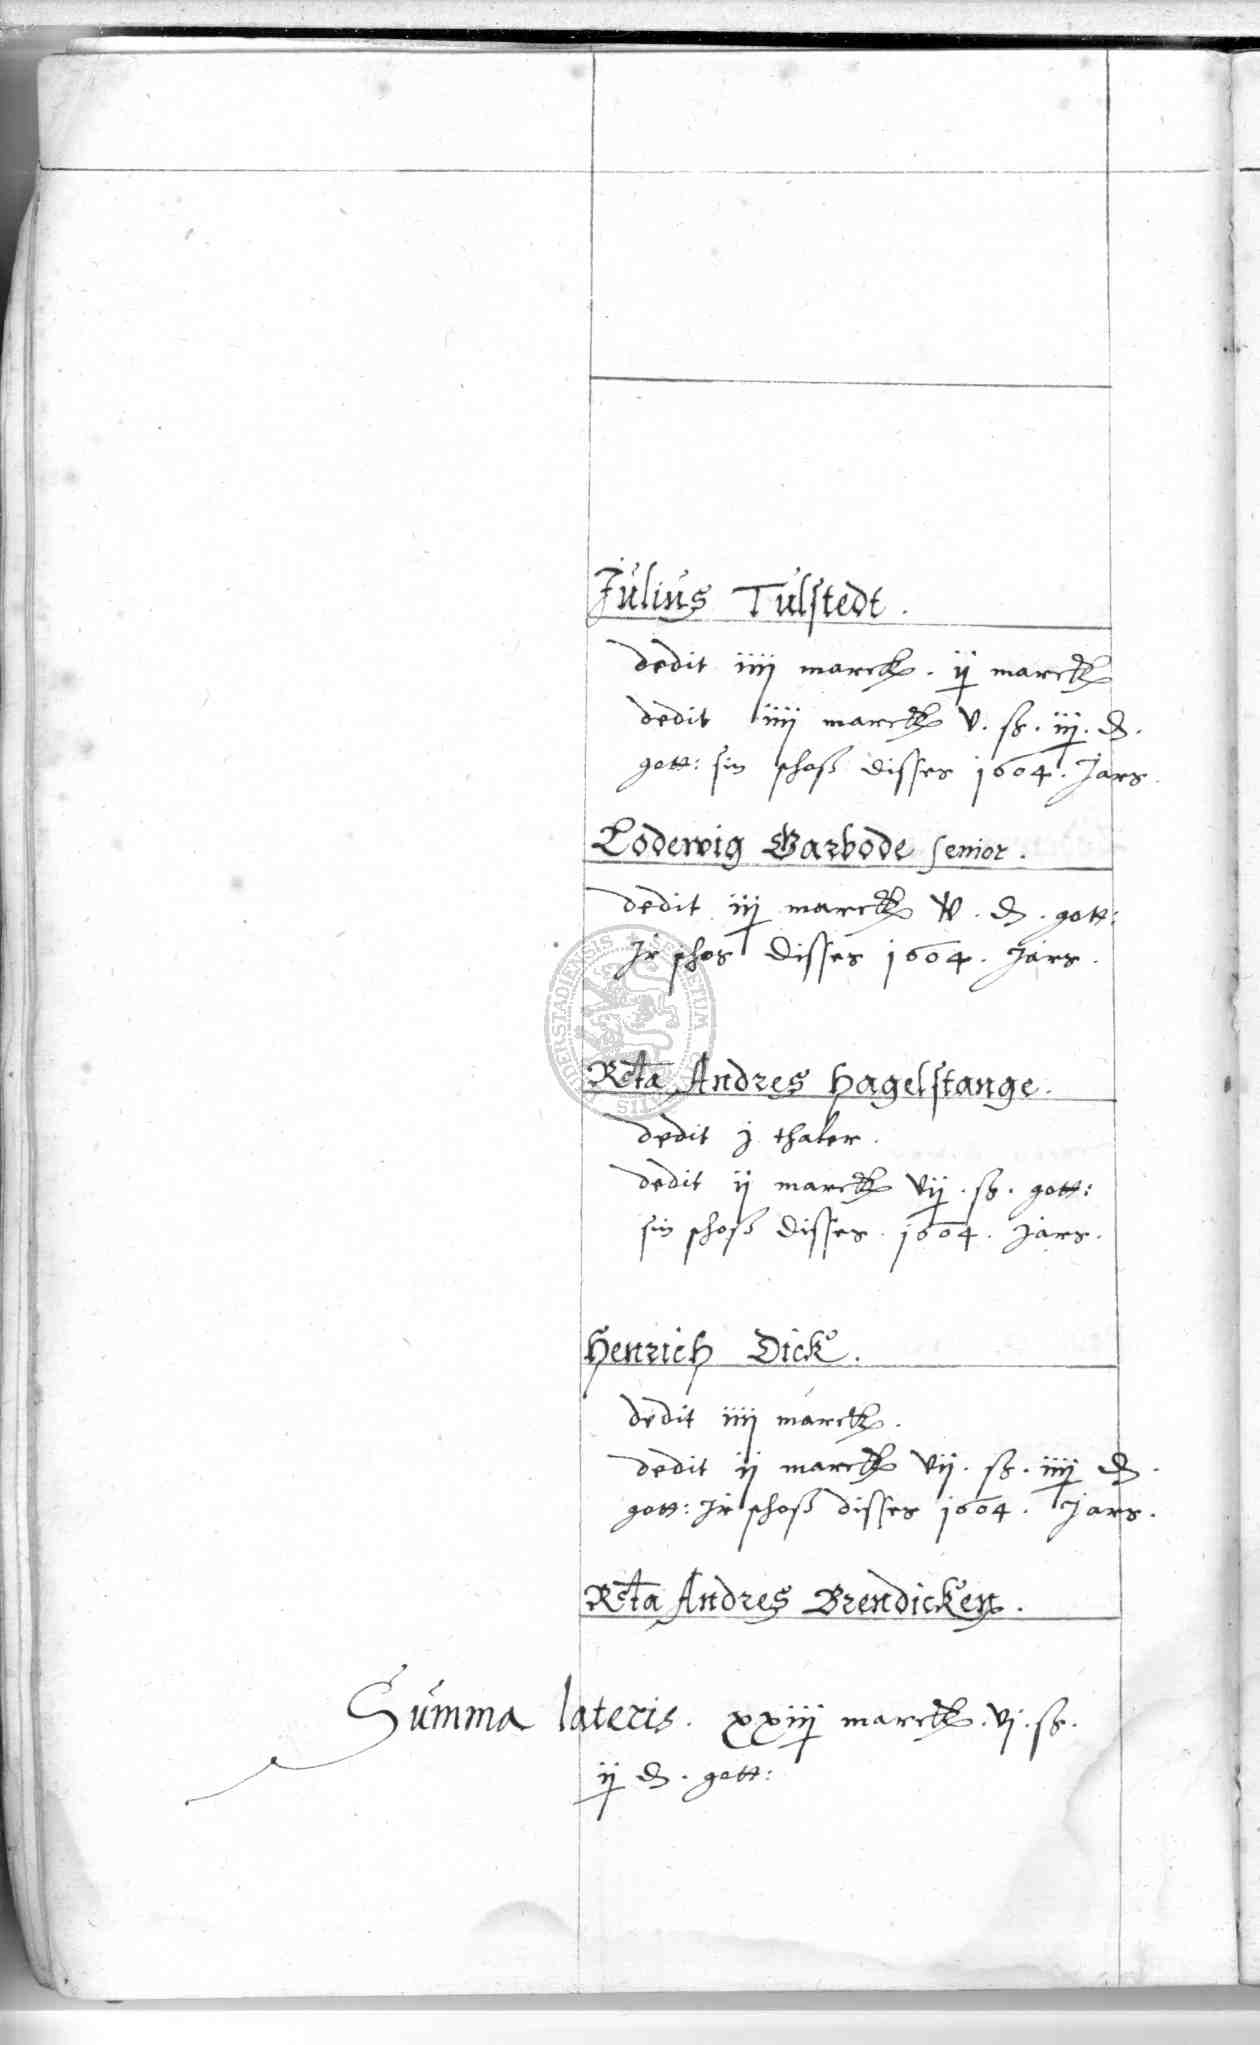 Julius Tulstedt.
dedit iiij marck. ij marck
dedit iiij marck v. ß. iij. d.
gott: sin schoß disses 1604. Jars.
Lodewig Garbode senior.
dedit iij marck v. d. gott:
Jr schos disses 1604. Jars.
Rcta Andres Hagelstange.
dedit j thaler.
dedit ij marck vij. ß. gott:
sin schoß disses. 1604. Jars.
Henrich Dick.
dedit iiij marck.
dedit ij marck vij. ß. iiij d.
gott: Jr schoß disses 1604. Jars.
Rcta Andres Brendicken.
Summa lateris. xxiiij marck. vj. ß.
ij d. gott: